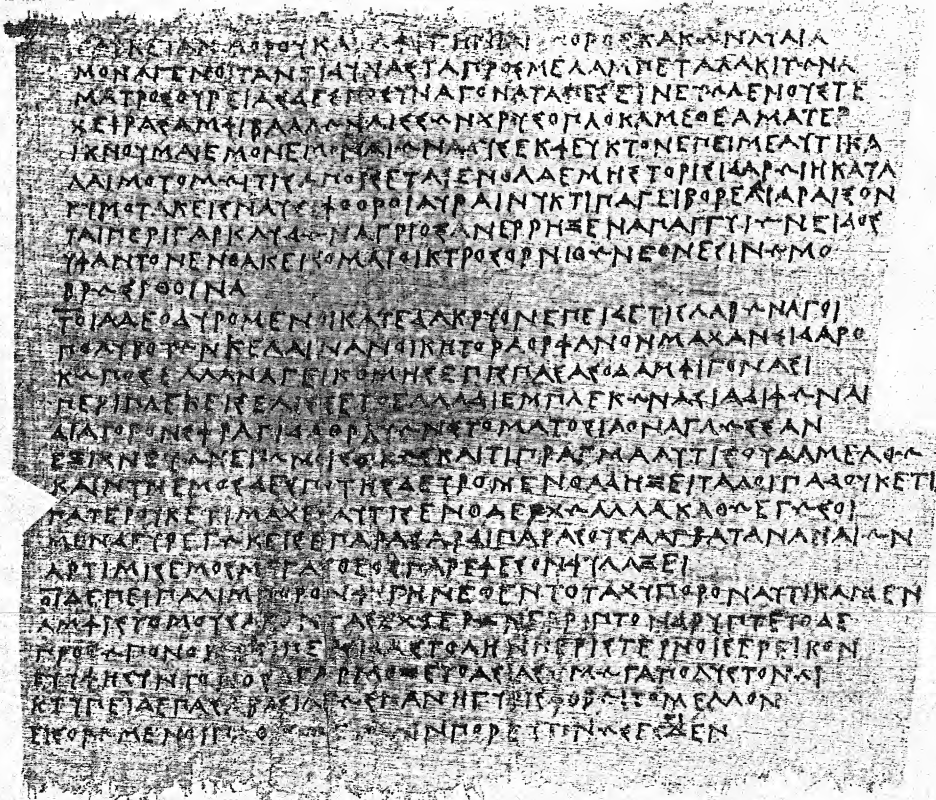 ϹΑΙΚΕΙΑΝΜΟΡΟΥΚΑΤΑΦΥΓΗΝΙΛΙΟΥΠΟΡΟϹΚΑΚΩΝΛΥΑΙΑ
ΜΟΝΑΓΕΝΟΙΤΑΝΕΙΔΥΝΑϹΤΑΠΡΟϹΜΕΛΑΜΠΕΤΑΛΑΚΙΤΩΝΑ
ΜΑΤΡΟϹΟΥΡΕΙΑϹΔΕϹΠΟϹΥΝΑΓΟΝΑΤΑΠΕϹΕΙΝΕΥΩΛΕΝΟΥϹΤΕ
ΧΕΙΡΑϹΑΜΦΙΒΑΛΛΩΝΛΙϹϹΩΝΧΡΥϹΟΠΛΟΚΑΜΕΘΕΑΜΑΤΕΡ
ΙΚΝΟΥΜΑΙΕΜΟΝΕΜΟΝΑΙΩΝΑΔΥϹΕΚΦΕΥΚΤΟΝΕΠΕΙΜΕΑΥΤΙΚΑ
ΛΑΙΜΟΤΟΜΩΙΤΙϹΑΠΟΙϹΕΤΑΙΕΝΘΑΔΕΜΗϹΤΟΡΙϹΙΔΑΡΩΙΗΚΑΤΑ
ΚΥΜΟΤΑΚΕΙϹΝΑΥϹΙΦΘΟΡΟΙΑΥΡΑΙΝΥΚΤΙΠΑΓΕΙΒΟΡΕΑΙΔΙΑΡΑΙϹΟΝ
ΤΑΙΠΕΡΙΓΑΡΚΛΥΔΩΝΑΓΡΙΟϹΑΝΕΡΡΗΞΕΝΑΠΑΓΓΥΙΩΝΕΙΔΟϹ
ΥΦΑΝΤΟΝΕΝΘΑΚΕΙϹΟΜΑΙΟΙΚΤΡΟϹΟΡΝΙΘΩΝΕΘΝΕϹΙΝΩΜΟ
ΒΡΩϹΙΘΟΙΝΑ
ΤΟΙΑΔΕΟΔΥΡΟΜΕΝΟΙΚΑΤΕΔΑΚΡΥΟΝΕΠΕΙΔΕΤΙϹΛΑΒΩΝΑΓΟΙ
ΠΟΛΥΒΟΤΩΝΚΕΛΑΙΝΑΝΟΙΚΗΤΟΡΑΟΡΦΑΝΟΝΜΑΧΑΝϹΙΔΑΡΟ
ΚΩΠΟϹΕΛΛΑΝΑΓΕΙΚΟΜΗϹΕΠΙϹΠΑϹΑϹΟΔΑΜΦΙΓΟΝΑϹΙ
ΠΕΡΙΠΛΕΚΕΙϹΕΛΙϹϹΕΤΟΕΛΛΑΔΙΕΜΠΛΕΚΩΝΑϹΙΑΔΙΦΩΝΑΙ
ΔΙΑΤΟΡΟΝϹΦΡΑΓΙΔΑΘΡΑΥΩΝϹΤΟΜΑΤΟϹΙΑΟΝΑΓΛΩϹϹΑΝ
ΕΞΙΧΝΕΥΩΝΕΓΩΜΟΙϹΟΙΚΩϹΚΑΙΤΙΠΡΑΓΜΑΑΥΤΙϹΟΥΔΑΜΕΛΘΩ
ΚΑΙΝΥΝΕΜΟϹΔΕϹΠΟΤΗϹΔΕΥΡΟΜΕΝΘΑΔΗΞΕΙΤΑΛΟΙΠΑΔΟΥΚΕΤΙ
ΠΑΤΕΡΟΥΚΕΤΙΜΑΧΕϹΑΥΤΙϹΕΝΘΑΔΕΡΧΩΑΛΛΑΚΑΘΩΕΓΩϹΟΙ
ΜΕΝΔΕΥΡΕΓΩΚΕΙϹΕΠΑΡΑϹΑΡΔΙΠΑΡΑϹΟΥϹΑΑΓΒΑΤΑΝΑΝΑΙΩΝ
ΑΡΤΙΜΙϹΕΜΟϹΜΕΓΑϹΘΕΟϹΠΑΡΕΦΕϹΟΝΦΥΛΑΞΕΙ
ΟΙΔΕΠΕΙΠΑΛΙΜΠΟΡΟΝΦΥΓΗΝΕΘΕΝΤΟΤΑΧΥΠΟΡΟΝΑΥΤΙΚΑΜΕΝ
ΑΜΦΙϹΤΟΜΟΥϹΑΚΟΝΤΑϹΕΚΧΕΡΩΝΕΡΙΠΤΟΝΔΡΥΠΤΕΤΟΔΕ
ΠΡΟϹΩΠΟΝΟΝΥΞΙΠΕΡϹΙΔΑϹΤΟΛΗΝΠΕΡΙϹΤΕΡΝΟΙϹΕΡΕΙΚΟΝ
ΕΥΥΦΗϹΥΝΤΟΝΟϹΔΑΡΜΟΖΕΤΟΑϹΙΑϹΟΙΜΩΓΑΠΟΛΥϹΤΟΝΩΙ
ΚΤΥΠΕΙΔΕΠΑϹΑΒΑϹΙΛΕΩϹΠΑΝΗΓΥΡΙϹΦΟΒΩΙΤΟΜΕΛΛΟΝ
ΕΙϹΟΡΩΜΕΝΟΙΠΑΘΟϹΟΔΕΠΑΛΙΝΠΟΡΕΥΤΟΝΩϹΕϹΙΔΕΝ